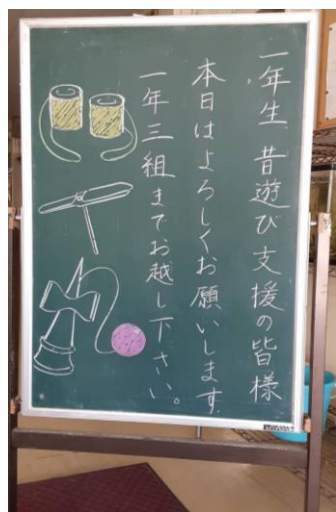 一年生 昔遊び支援の皆様
本日はよろしくお願いします
一年三組までお越し下さい。